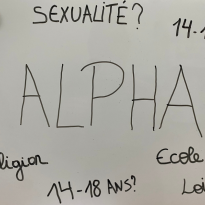 SEXUALITÉ?
14-1
ALPHA
ligion
Ecole
14-18 ANS?
Loi